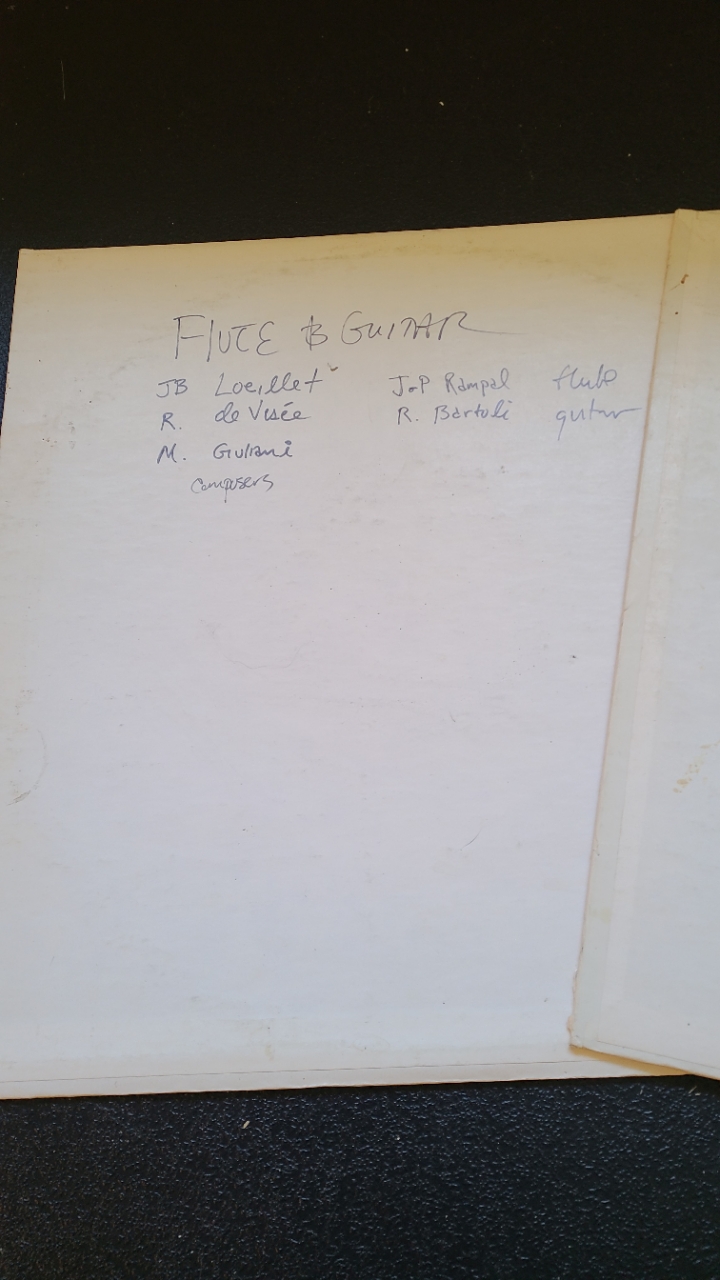 FLUTE & GUITAR
JB Loeillet J-P Rampal flute
R. de Visée R. Bartoli guitar
M. Giuliani
composers